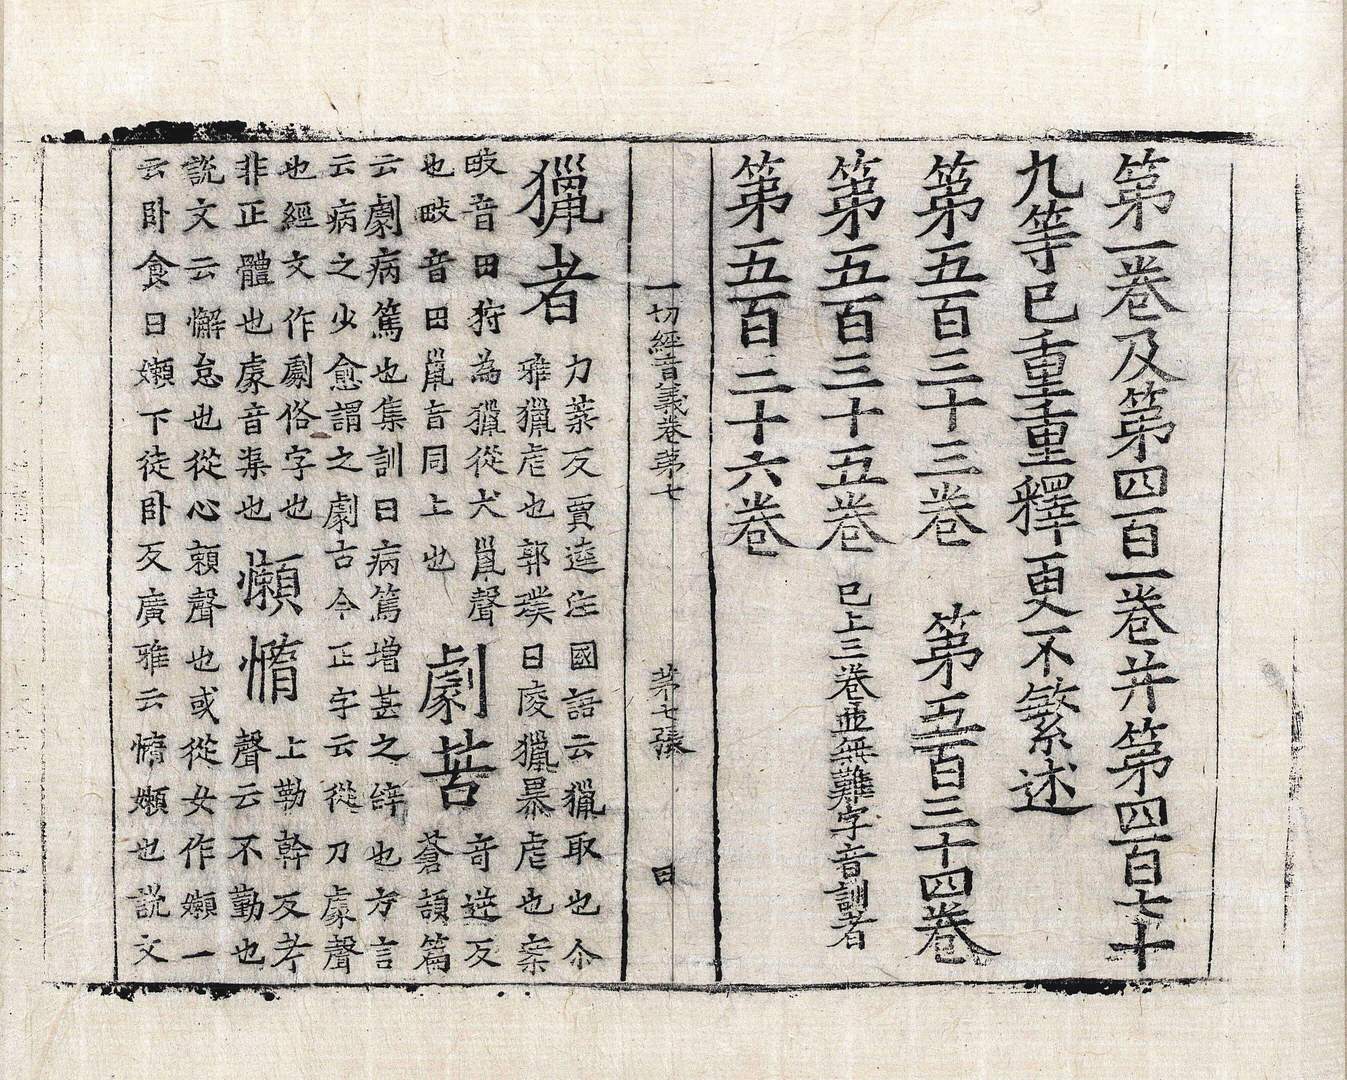 第一卷及第四百一卷并第四百七十
九等已重重釋更不繁述
第五百三十三卷　第五百三十四卷
第五百三十五卷　已上三卷並無難字音訓者
第五百二十六卷
一切經音義卷第七　第七張　曰
獵者　力葉反賈逵注國語云獵取也尒
雅獵虐也郭璞曰淩獵暴虐也案
畋音田狩為獵從犬巤聲
也畋音田巤音同上也
劇苦　奇逆反
蒼頡篇
云劇病篤也集訓曰病篤增甚之辝也方言
云病之少愈謂之劇古今正字云從刀豦聲
也經文作劇俗字也
非正體也豦音渠也
懶惰　上勒幹反考
聲云不勤也
說文云懈怠也從心賴聲也或從女作嬾一
云卧食曰嬾下徒卧反廣雅云惰嬾也說文